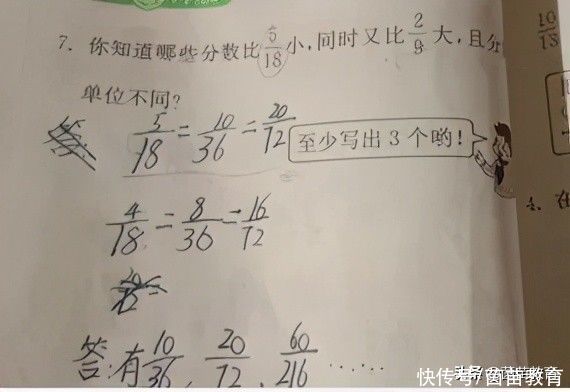 7. 你知道哪些分数比5/18小,同时又比2/9大,且分
单位不同?
答: 5/18 = 10/36 = 20/72
至少写出3个哟!
4/18 = 8/36 = 16/72
答:有10/36、20/72、60/216 ……
10/13
4. 在
快传号/茵苗教育